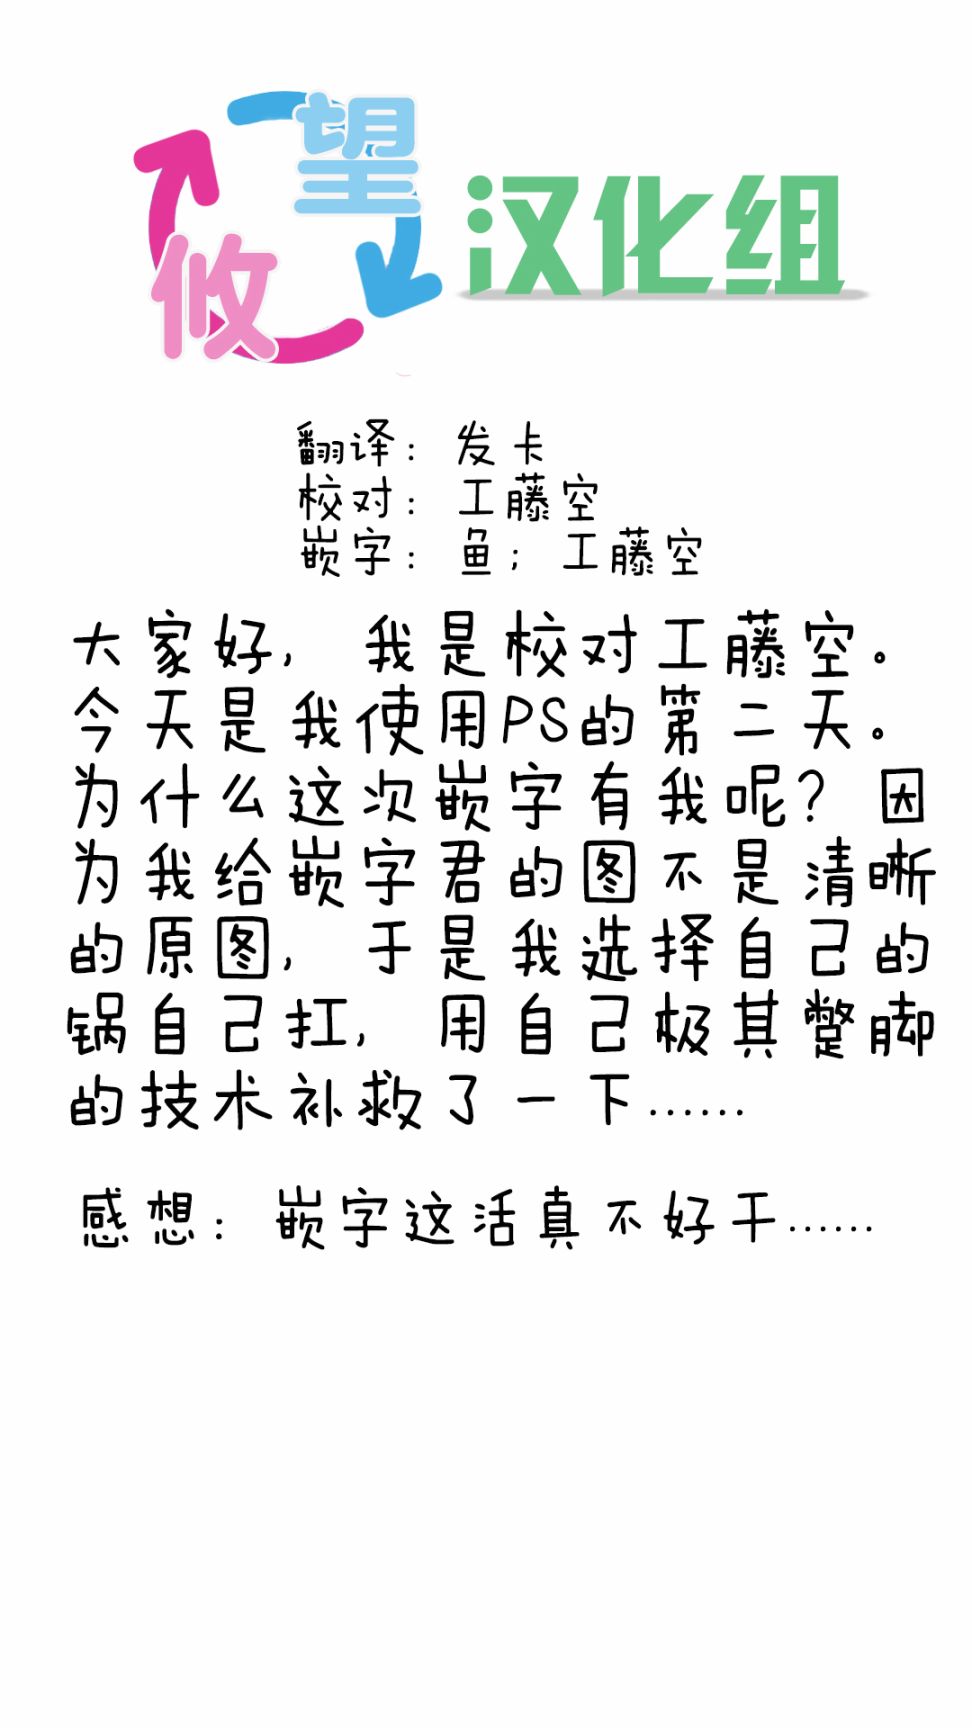 望
攸
汉化组
翻译：发卡
校对：工藤空
嵌字：鱼；工藤空
大家好，我是校对工藤空。
今天是我使用PS的第二天。
为什么这次嵌字有我呢？因
为我给嵌字君的图不是清晰
的原图，于是我选择自己的
锅自己扛，用自己极其蹩脚
的技术补救了一下……
感想：嵌字这活真不好干……